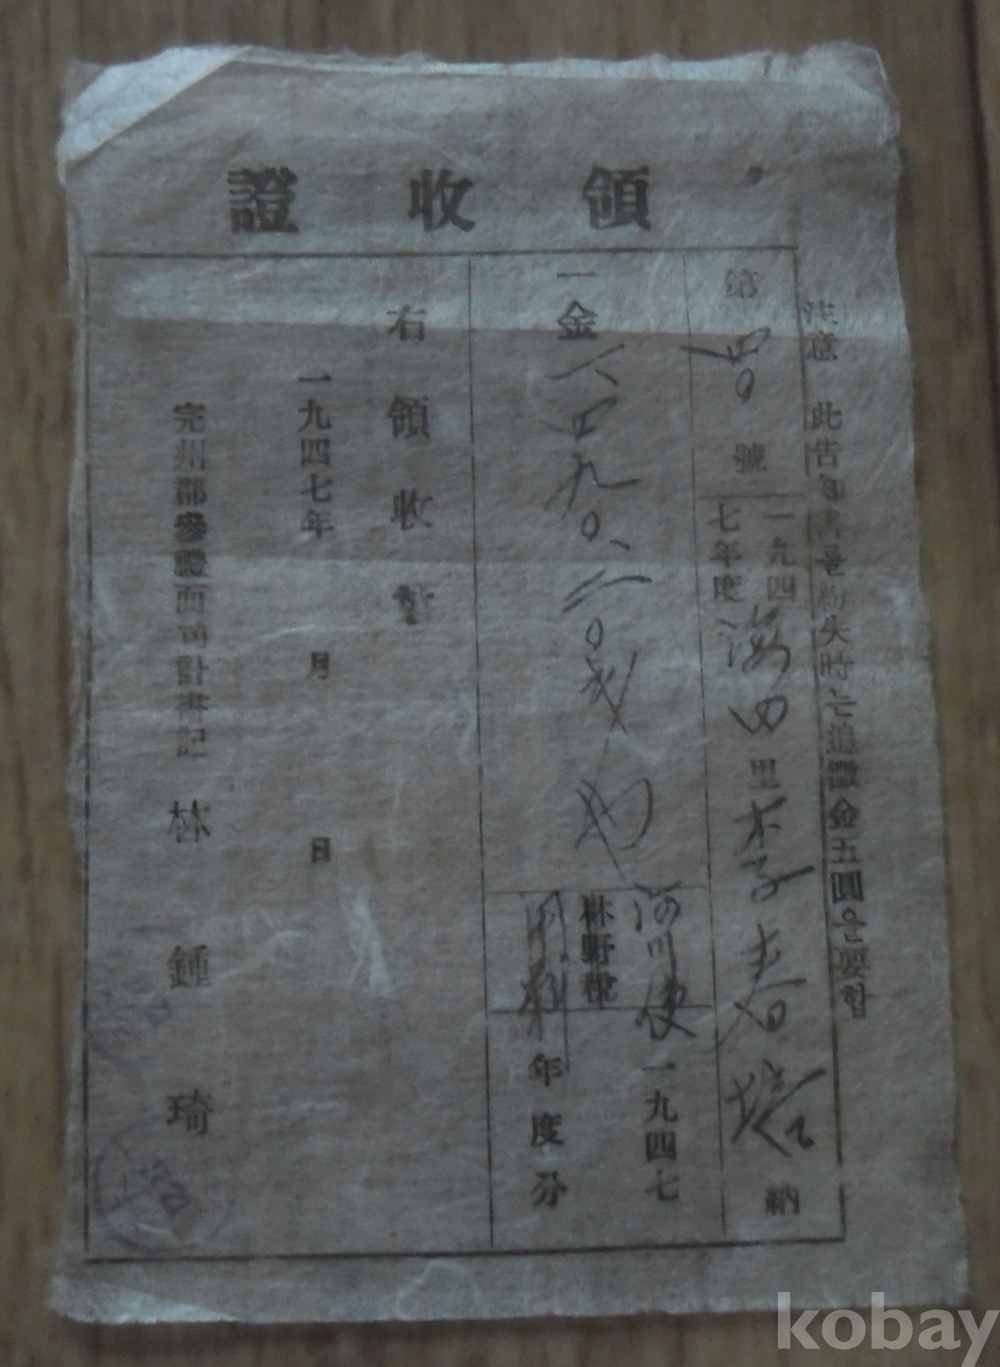 領收證
注意 此告知書를紛失時는追徵金五圓은要함
第 號
一九四七年度
海田里 李春 納
一金 六四九〇、二〇
河川使用料
林野稅
一九四七年度分
右領收함
一九四七年 月 日
完州郡參禮面司計書記 林鍾琦
kobay